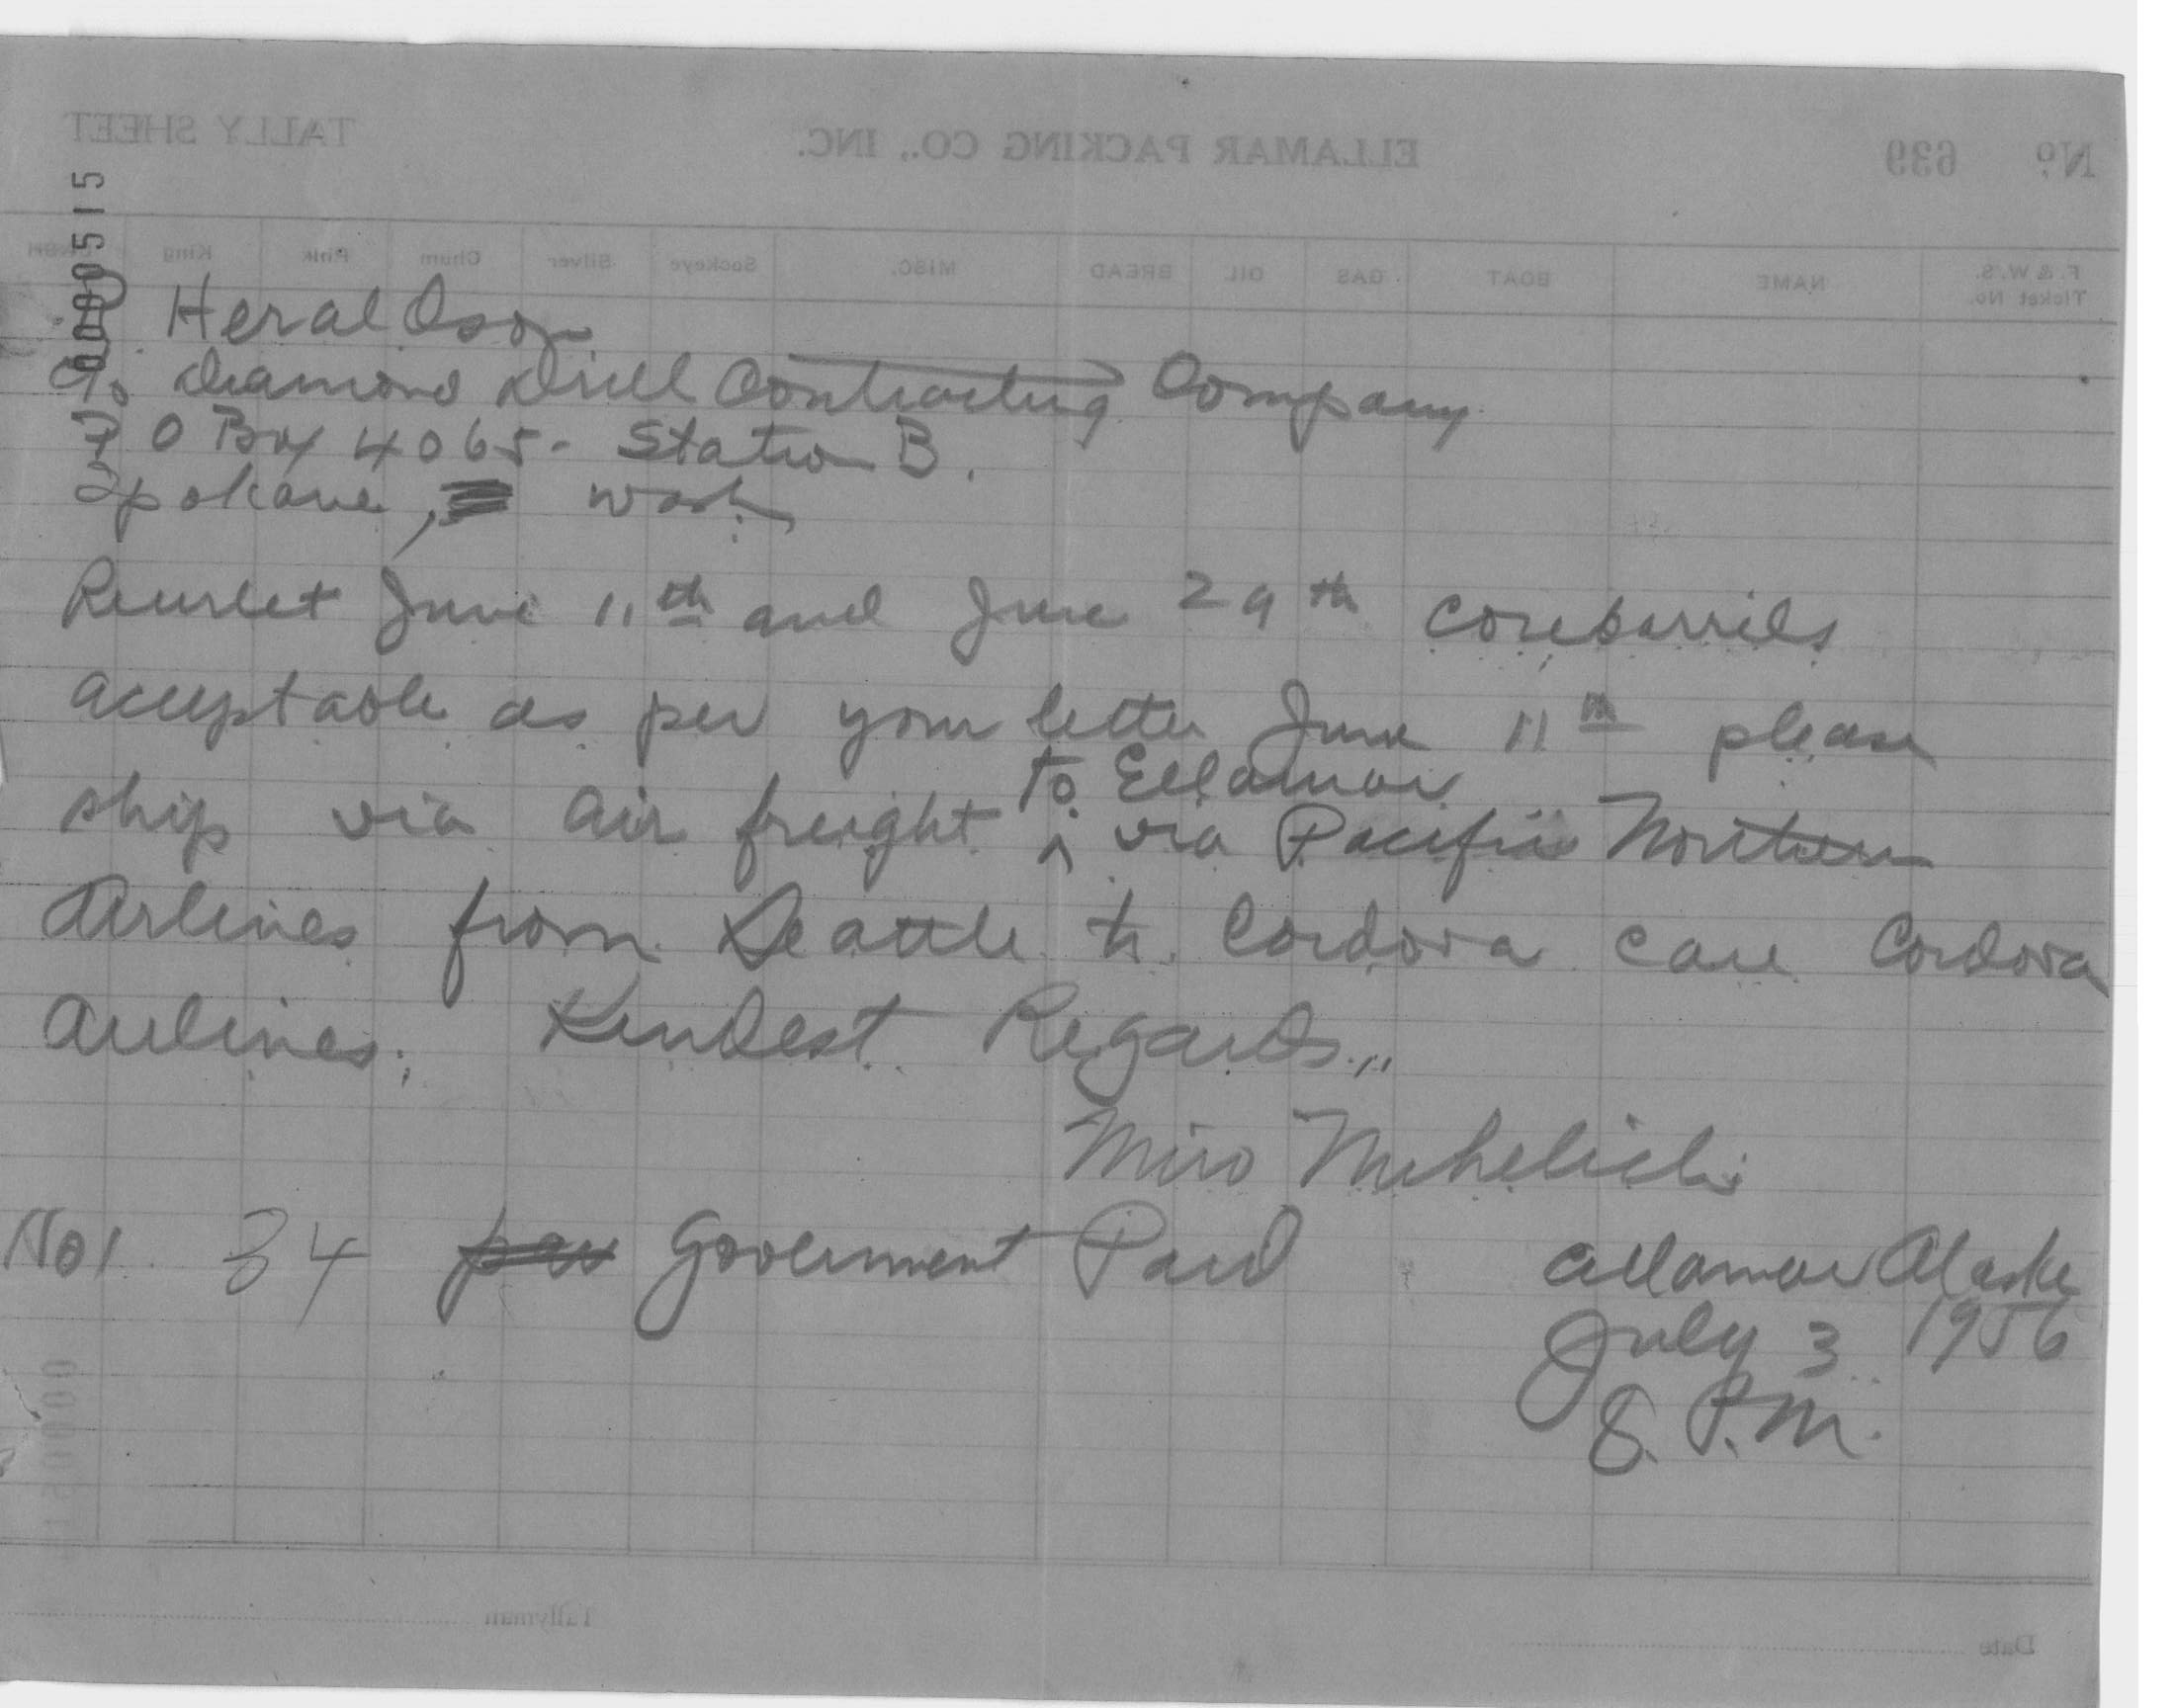 TALLY SHEET ELLAMAR PACKING CO., INC. No. 639
00000515
King Pink Chum Silver Sockeye MISC. BREAD OIL GAS BOAT NAME F. & W.S. Ticket No.
Heral Oson
c/o Diamond Drill Contracting Company
P O Box 4065- Station B.
Spokane, Wash.
Reurlet June 11th and June 29th corebarrels
acceptable as per your letter June 11th please
ship via air freight to Ellamar via Pacific Northern
Airlines from Seattle to Cordova care Cordova
Airlines. Kindest Regards,,
Miro Mihelich
No 1 34 per Government Paid Ellamar Alaska
July 3 1956
8. P.M.
Tallyman Date